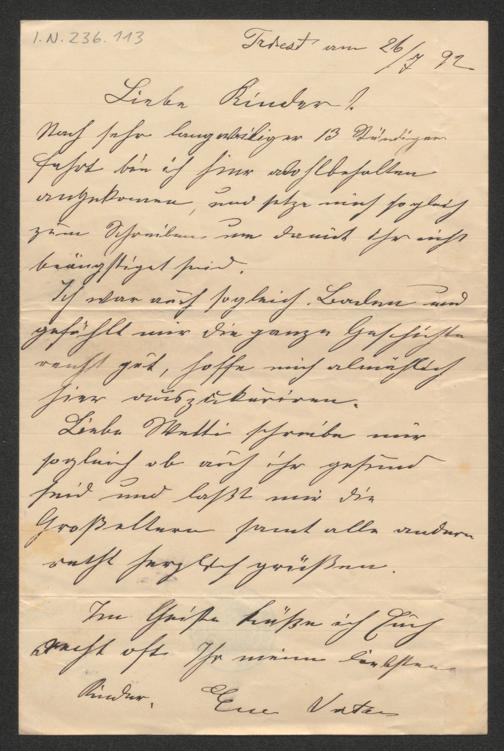 I.N. 236.113
Triest am 26/7 92
Liebe Kinder!
Nach sehr langweiliger 13 stündiger
Fahrt bin ich hier wohlbehalten
angekomen, und setze mich sogleich
zum Schreiben um damit ihr nicht
beängstiget seid.
Ich war auch sogleich Baden und
gefählt mir die ganze Geschichte
recht gut, hoffe mich almählich
hier auszukuriren.
Liebe Wetti schreibe mir
sogleich ob auch ihr gesund
seid und laßt mir die
Großeltern samt alle andern
recht herzlich grüßen.
Im Geiste küße ich Euch
recht oft Ihr meine liebsten
Kinder. Euer Vater